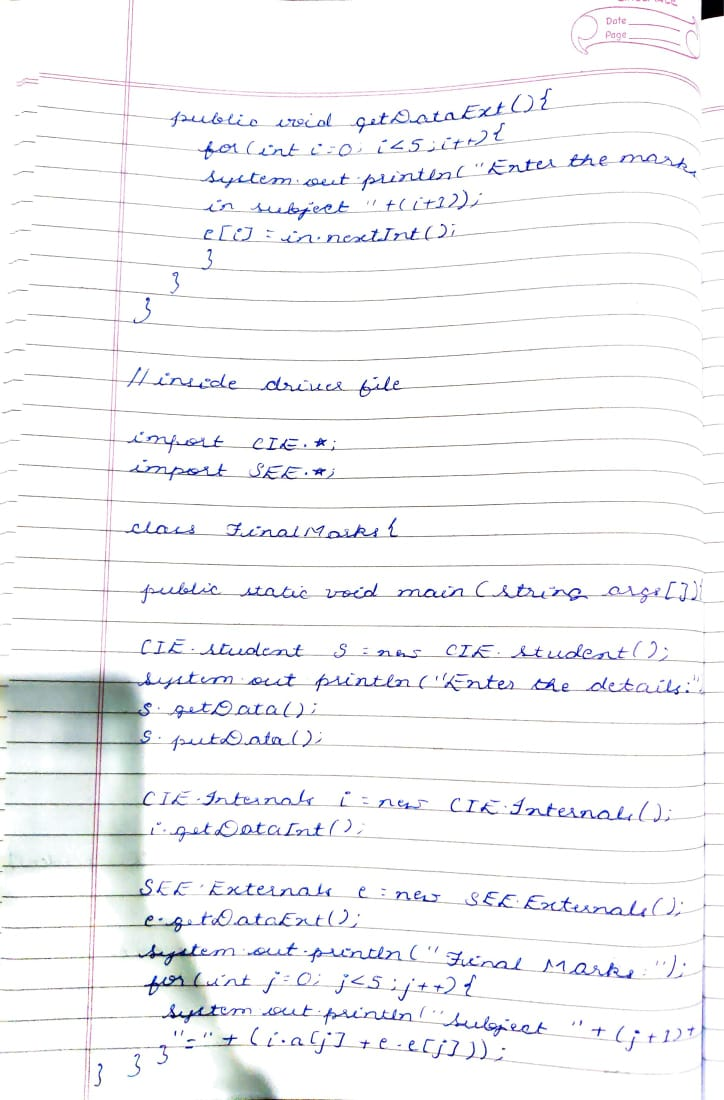 Date
Page
public void getDataExt(){
for(int i=0; i<5; i++){
system.out.println("Enter the mark
in subject "+(i+1));
e[i] = in.nextInt();
}
}
}
//inside driver file
import CIE.*;
import SEE.*;
class FinalMarks{
public static void main (string args[]){
CIE.student s = new CIE.student();
system.out println("Enter the details:"
s.getData();
s.putData();
CIE.Internals i = new CIE.Internals();
i.getDataInt();
SEE.Externals e = new SEE.Externals();
e.getDataExt();
system.out.println("Final Marks:");
for(int j=0; j<5; j++){
system out.println("subject "+(j+1)+
"="+(i.a[j] + e.e[j]));
} } }